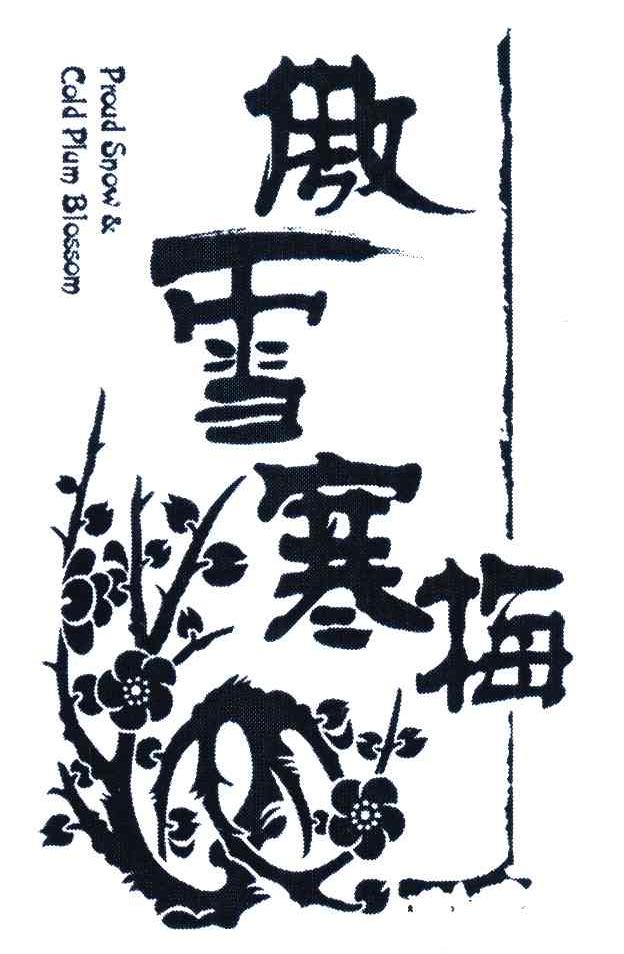 傲
雪
寒
梅
Proud Snow &
Cold Plum Blossom